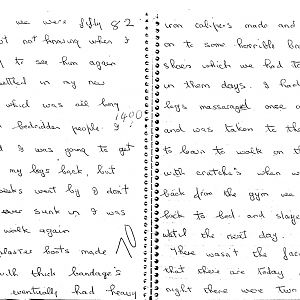 we were fifty & 2
but not knowing when I
to see him again
settled in my new
which was all boy
1400
bedridden people I
I was going to get
my legs back, but
weeks went by I don't
ever sunk in I was
walk again
10
plaster boots made
with thick bandage's
eventually had heavy
iron calipers made and
on to some horrible
shoes which we had to
in them days. I had
legs massaged once a
and was taken to the
to learn to walk on
with crutche's when
back from the gym we
back to bed and stayed
until the next day.
There wasn't the
that there are today
night there were two